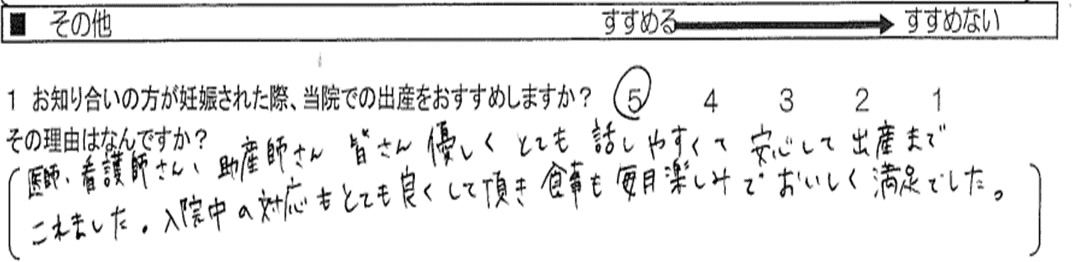 ■ その他 すすめる すすめない
1 お知り合いの方が妊娠された際、当院での出産をおすすめしますか? 5 4 3 2 1
その理由はなんですか?
医師、看護師さん、助産師さん 皆さん 優しく とても 話しやすくて 安心して 出産まで
これました。入院中の対応もとても良くして頂き 食事も 毎日楽しみで おいしく 満足でした。